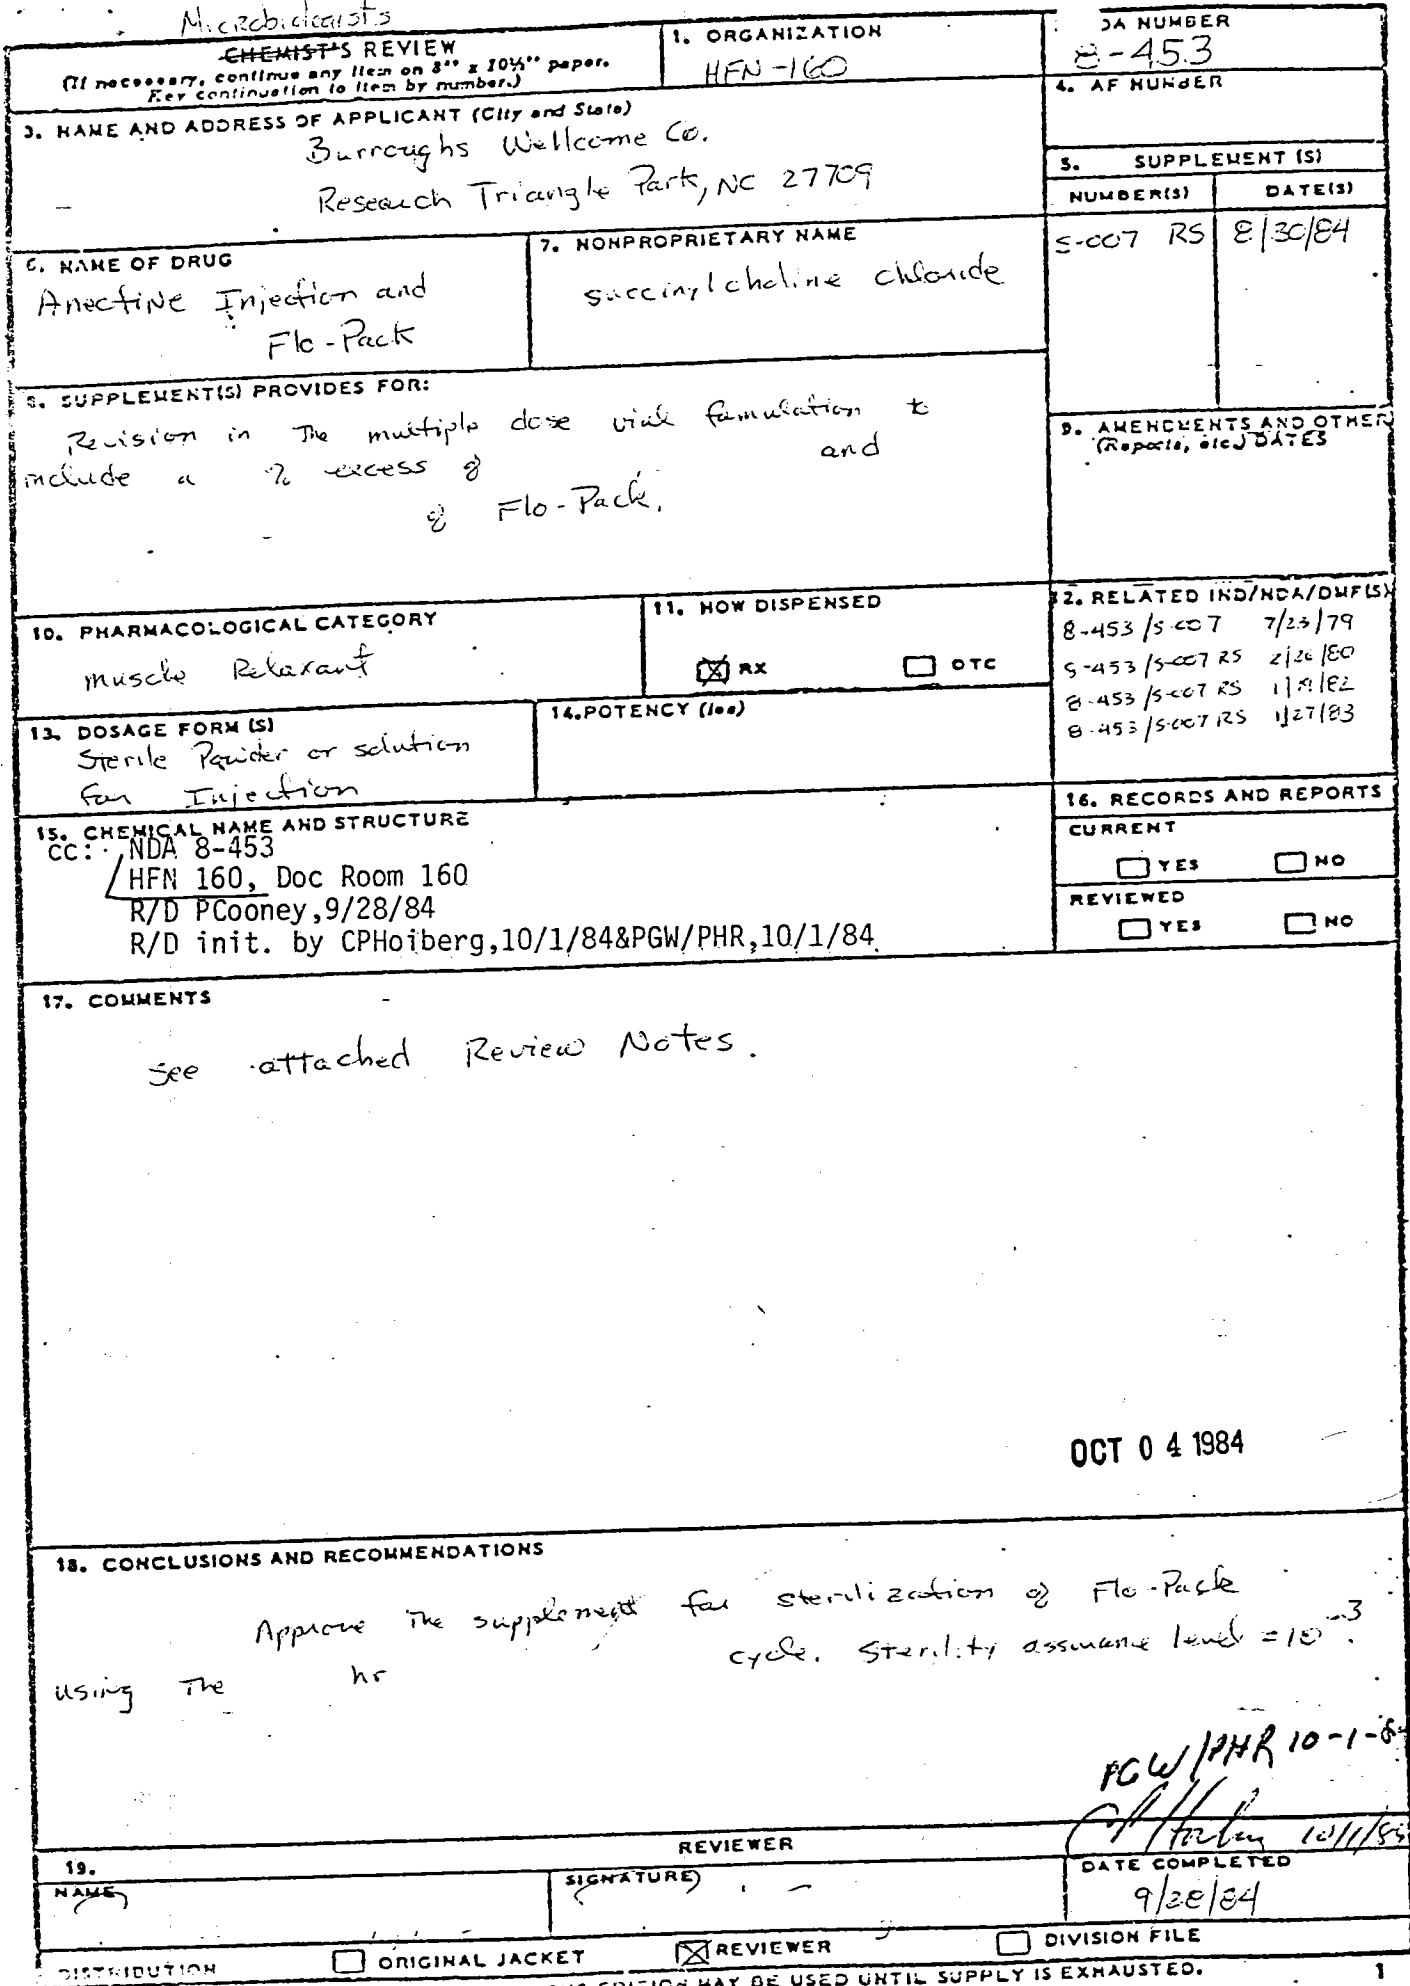 Microbiologists
CHEMIST'S REVIEW
(If necessary, continue any item on 8" x 10½" paper.
Key continuation to item by number.)
1. ORGANIZATION
HFN-160
DA NUMBER
8-453
3. NAME AND ADDRESS OF APPLICANT (City and State)
Burroughs Wellcome Co.
Research Triangle Park, NC 27709
4. AF NUMBER
5. SUPPLEMENT (S)
NUMBER(S) DATE(S)
S-007 RS 8/30/84
6. NAME OF DRUG
Anectine Injection and
Flo-Pack
7. NONPROPRIETARY NAME
succinylcholine chloride
8. SUPPLEMENT(S) PROVIDES FOR:
Revision in The multiple dose vial formulation to
include a % excess of and
of Flo-Pack.
9. AMENDMENTS AND OTHER
(Reports, etc.) DATES
10. PHARMACOLOGICAL CATEGORY
muscle Relaxant
11. HOW DISPENSED
RX OTC
12. RELATED IND/NDA/DMF(S)
8-453/S-007 7/23/79
8-453/S-007 RS 2/26/80
8-453/S-007 RS
8-453/S-007 RS 1/27/83
13. DOSAGE FORM (S)
Sterile Powder or solution
for Injection
14. POTENCY (ies)
15. CHEMICAL NAME AND STRUCTURE
cc: NDA 8-453
HFN 160, Doc Room 160
R/D PCooney,9/28/84
R/D init. by CPHoiberg,10/1/84&PGW/PHR,10/1/84
16. RECORDS AND REPORTS
CURRENT
YES NO
REVIEWED
YES NO
17. COMMENTS
see attached Review Notes.
OCT 04 1984
18. CONCLUSIONS AND RECOMMENDATIONS
Approve The supplement for sterilization of Flo-Pack
using The hr cycle. Sterility assurance level = 10⁻³.
PGW/PHR 10-1-8
19. REVIEWER
NAME
SIGNATURE
DATE COMPLETED
9/28/84
DISTRIBUTION
ORIGINAL JACKET
REVIEWER
DIVISION FILE
EDITION MAY BE USED UNTIL SUPPLY IS EXHAUSTED.
1